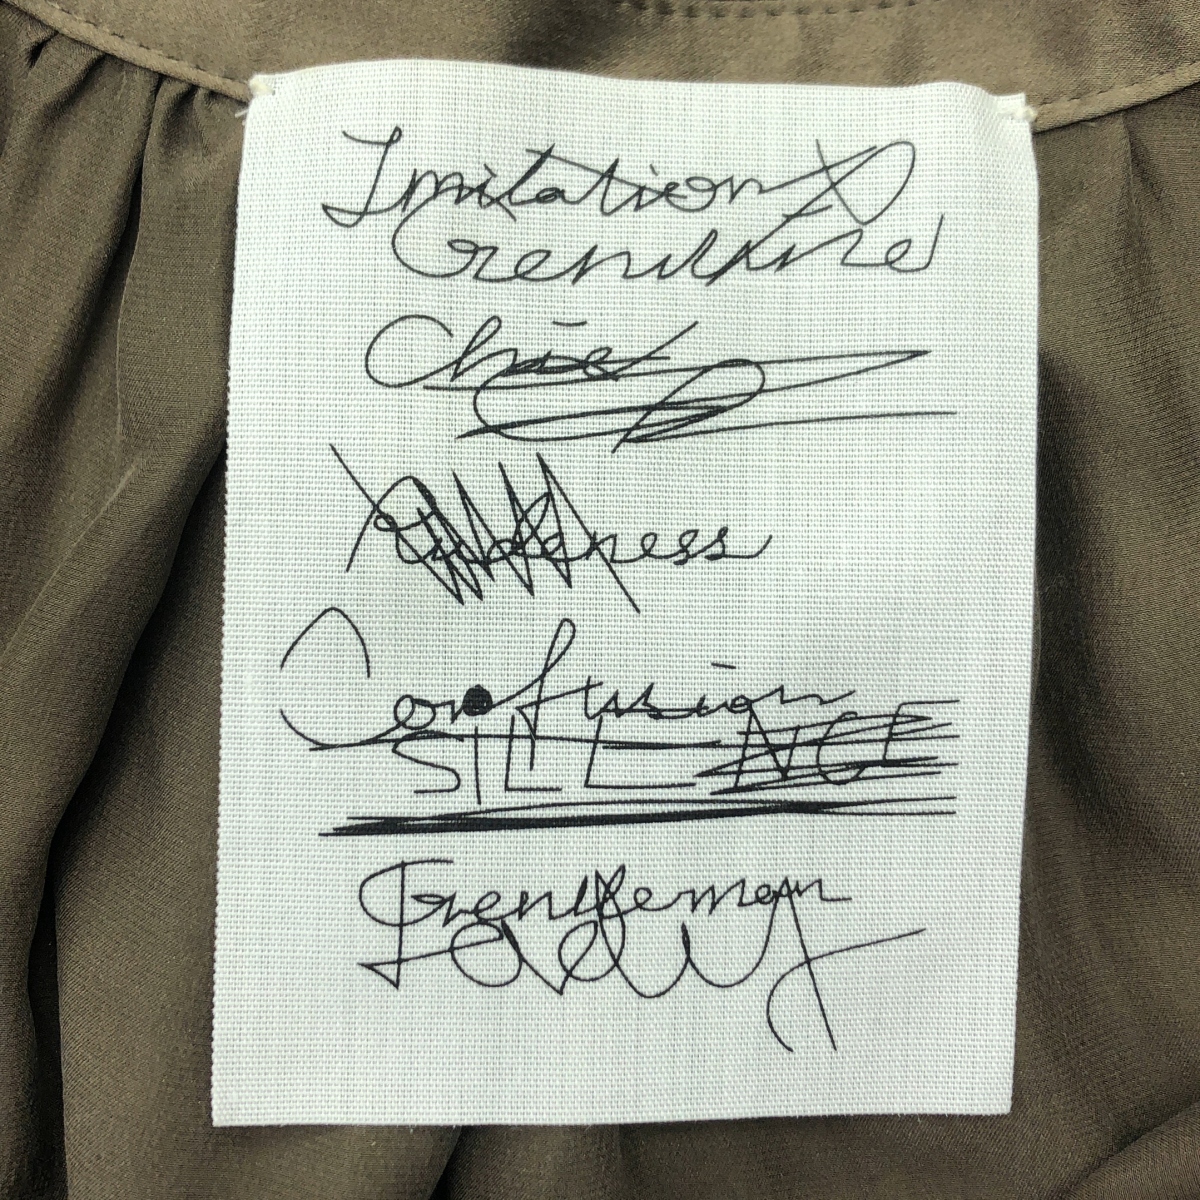 Imitation
Genuine
Chic
Confusion
SILENCE
Gentleman
Lady